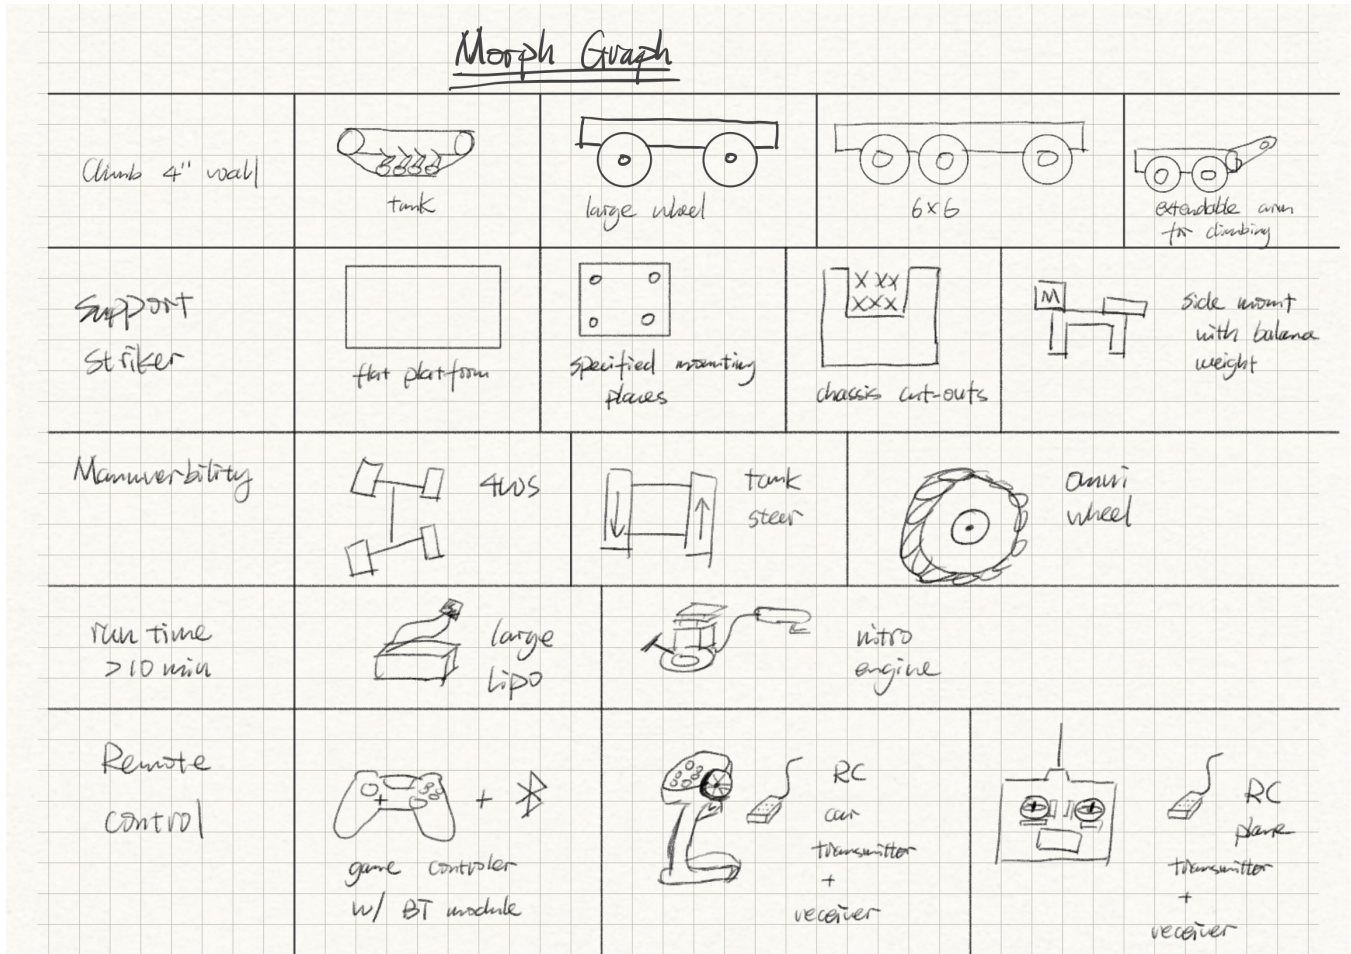 Morph Graph
Climb 4" wall
tank
large wheel
6×6
extendable arm
for climbing
Support
striker
flat platform
specified mounting
places
X X X
X X X
chassis cut-outs
M
side mount
with balance
weight
Manuverbility
4WS
tank
steer
omni
wheel
run time
>10 min
large
Lipo
nitro
engine
Remote
control
+
game controler
w/ BT module
RC
car
transmitter
+
receiver
RC
plane
transmitter
+
receiver